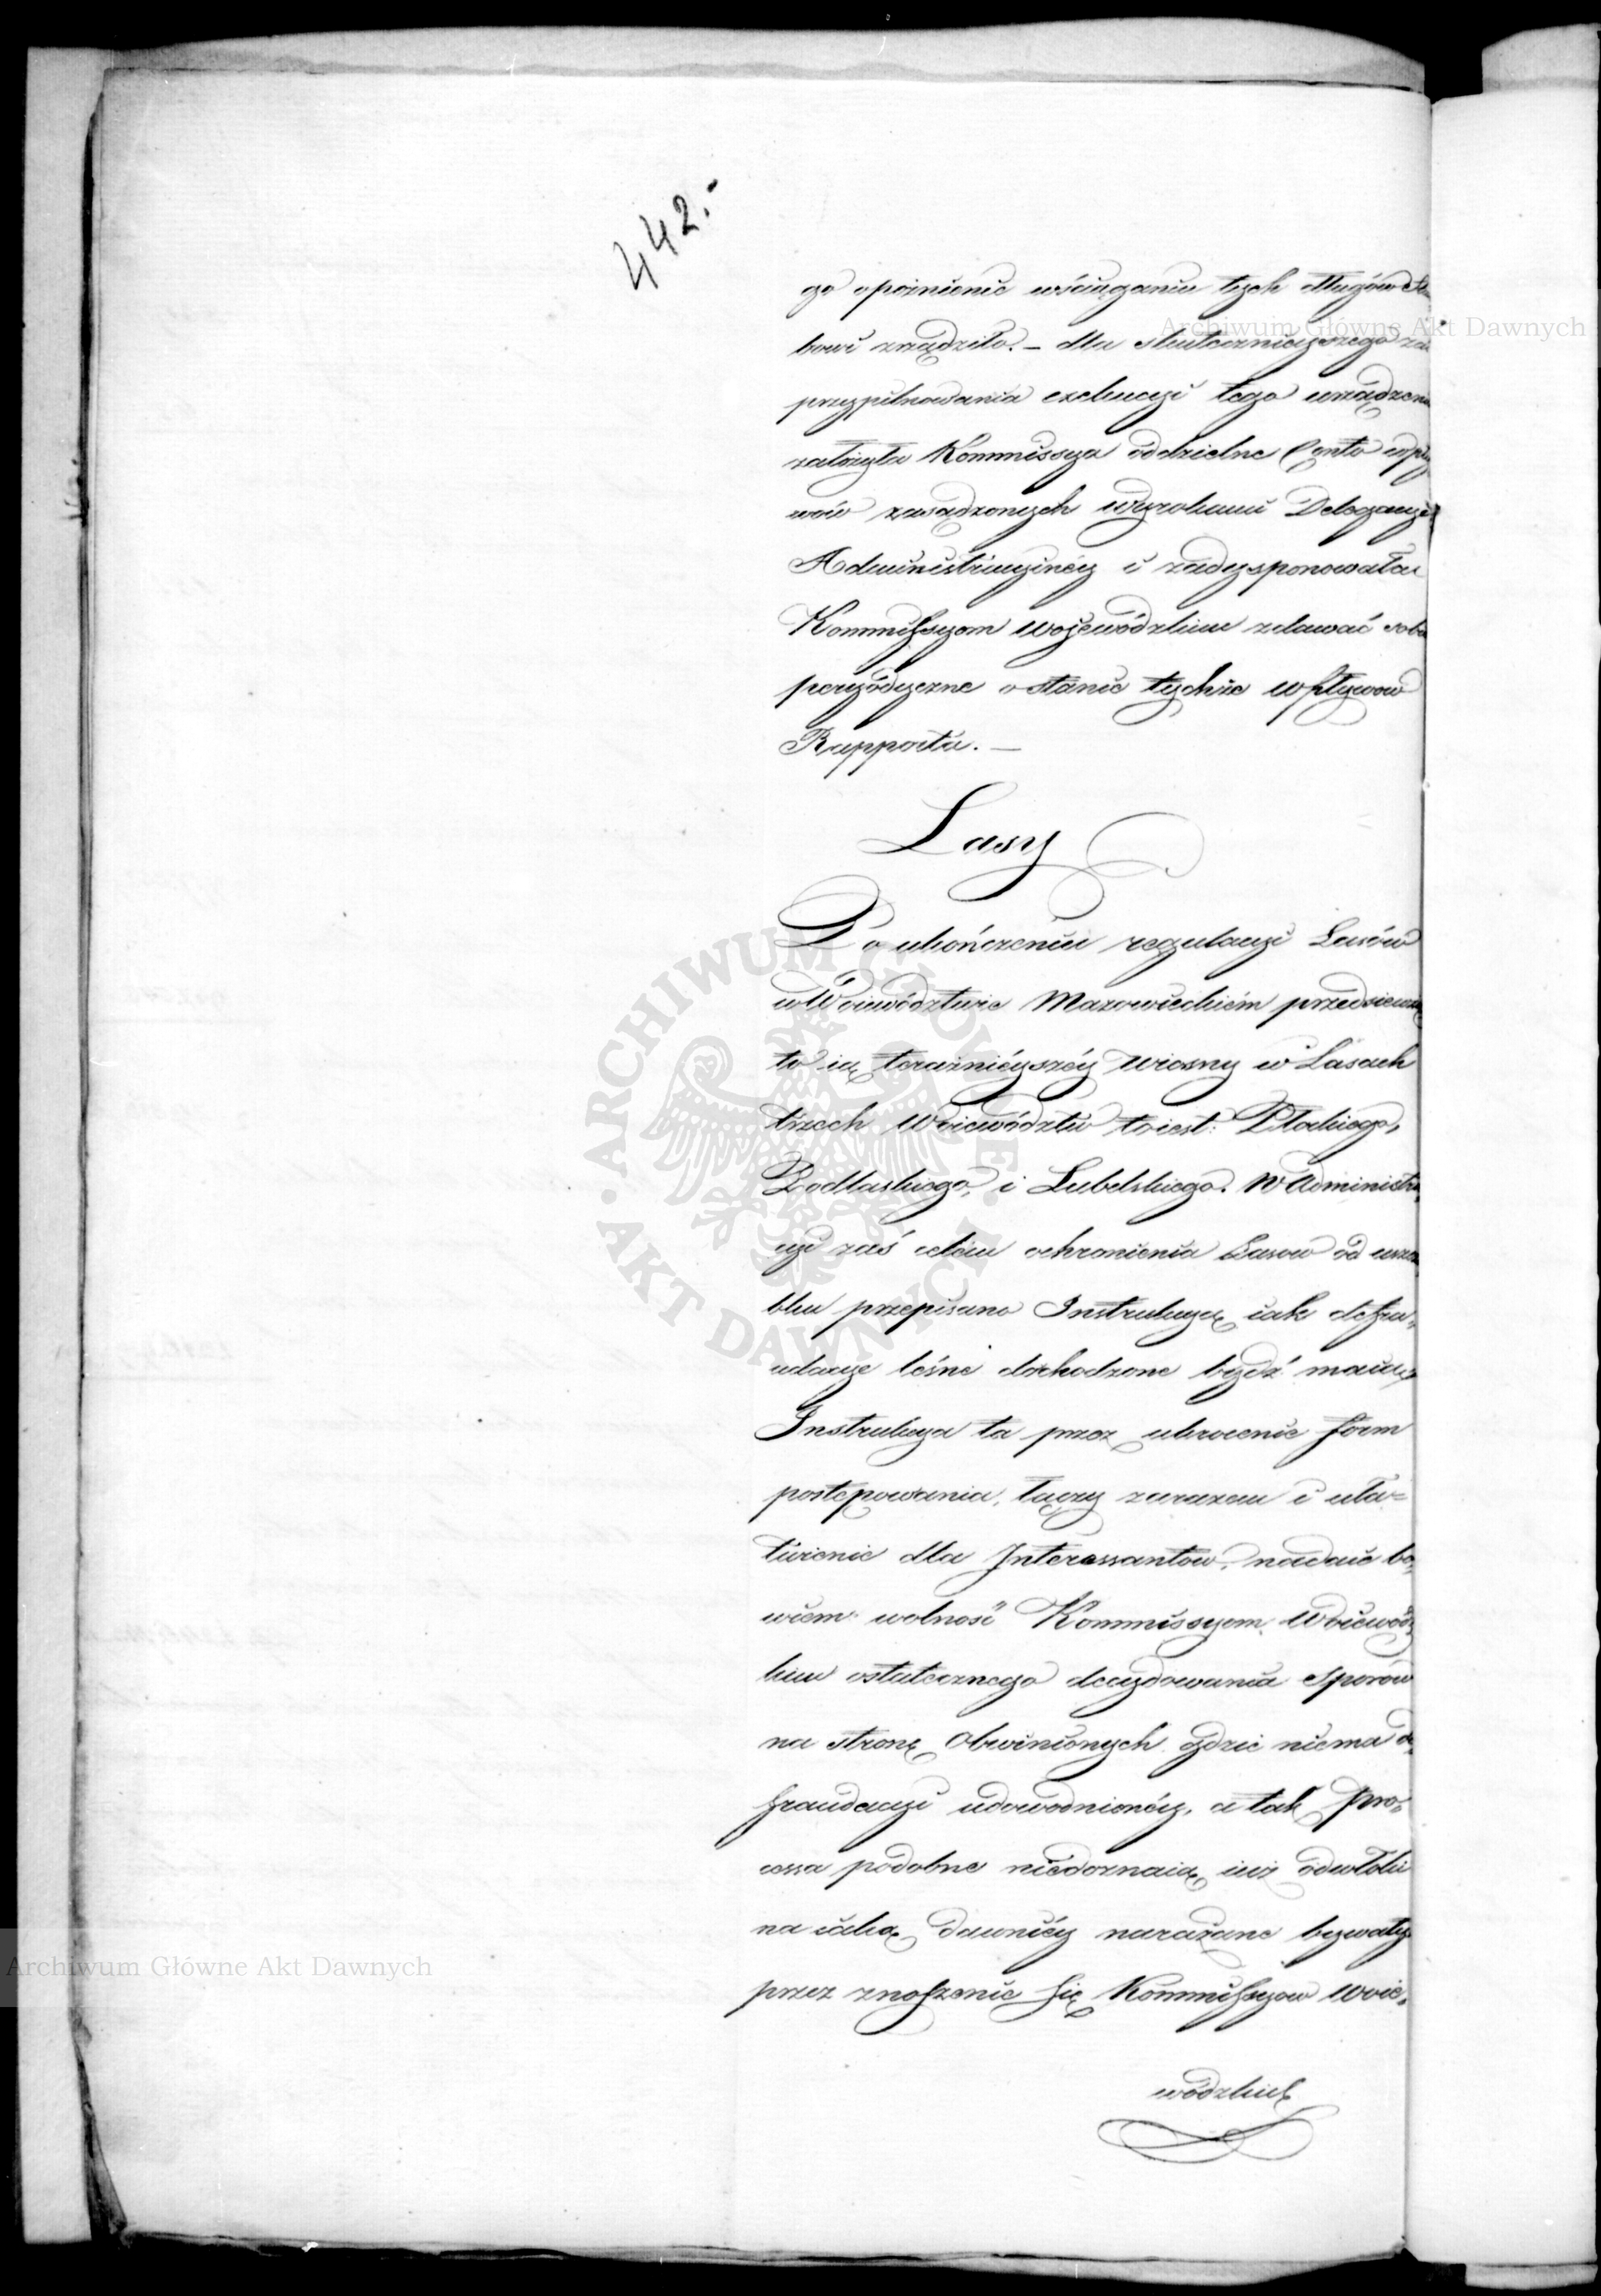 442.-
go opóznienie wściąganiu tych długów Skar
Archiwum Główne Akt Dawnych
bowi zrządziło. – dla skutecznieyszego zaś
przypilnowania exekucyi tego urządzenia
założyła Kommissya oddzielne Conto wpły
wów zasądzonych wyrokami Delegacyi
Administracyinéy i zadysponowała
Kommissyom Wojewódzkim zdawać sobie
peryódyczne o stanie tychże wpływow
Rapporta. –
Lasy
Po ukończeniu regulacyi Lasów
w Woiewództwie Mazowieckiém przedsiewzię
to ią teraznieyszéy wiosny w Lasach
trzech Woiewództw toiest: Płockiego,
Podlaskiego, i Lubelskiego. W Administra
cyi zaś celem ochronienia Lasow od uszczer
bku przepisano Instrukcyę iak defra-
udacye leśne dochodzone bydź maią
Instrukcya ta przez ukrocenie form
postępowania, łączy zarazem i uła=
twienie dla Interessantow, nadaie bo-
wiem wolność Kommissyom Woiewódz
kim ostatecznego decydowania Sporów
na stronę Obwinionych gdzie niema de-
fraudacyi udowodnionéy, a tak Pro-
cessa podobne niedoznaią iuż odwłoki
na iaką dawniéy narażane bywały
przez znoszenie się Kommissyow Woie-
wódzkich
ARCHIWUM GŁÓWNE AKT DAWNYCH
Archiwum Główne Akt Dawnych